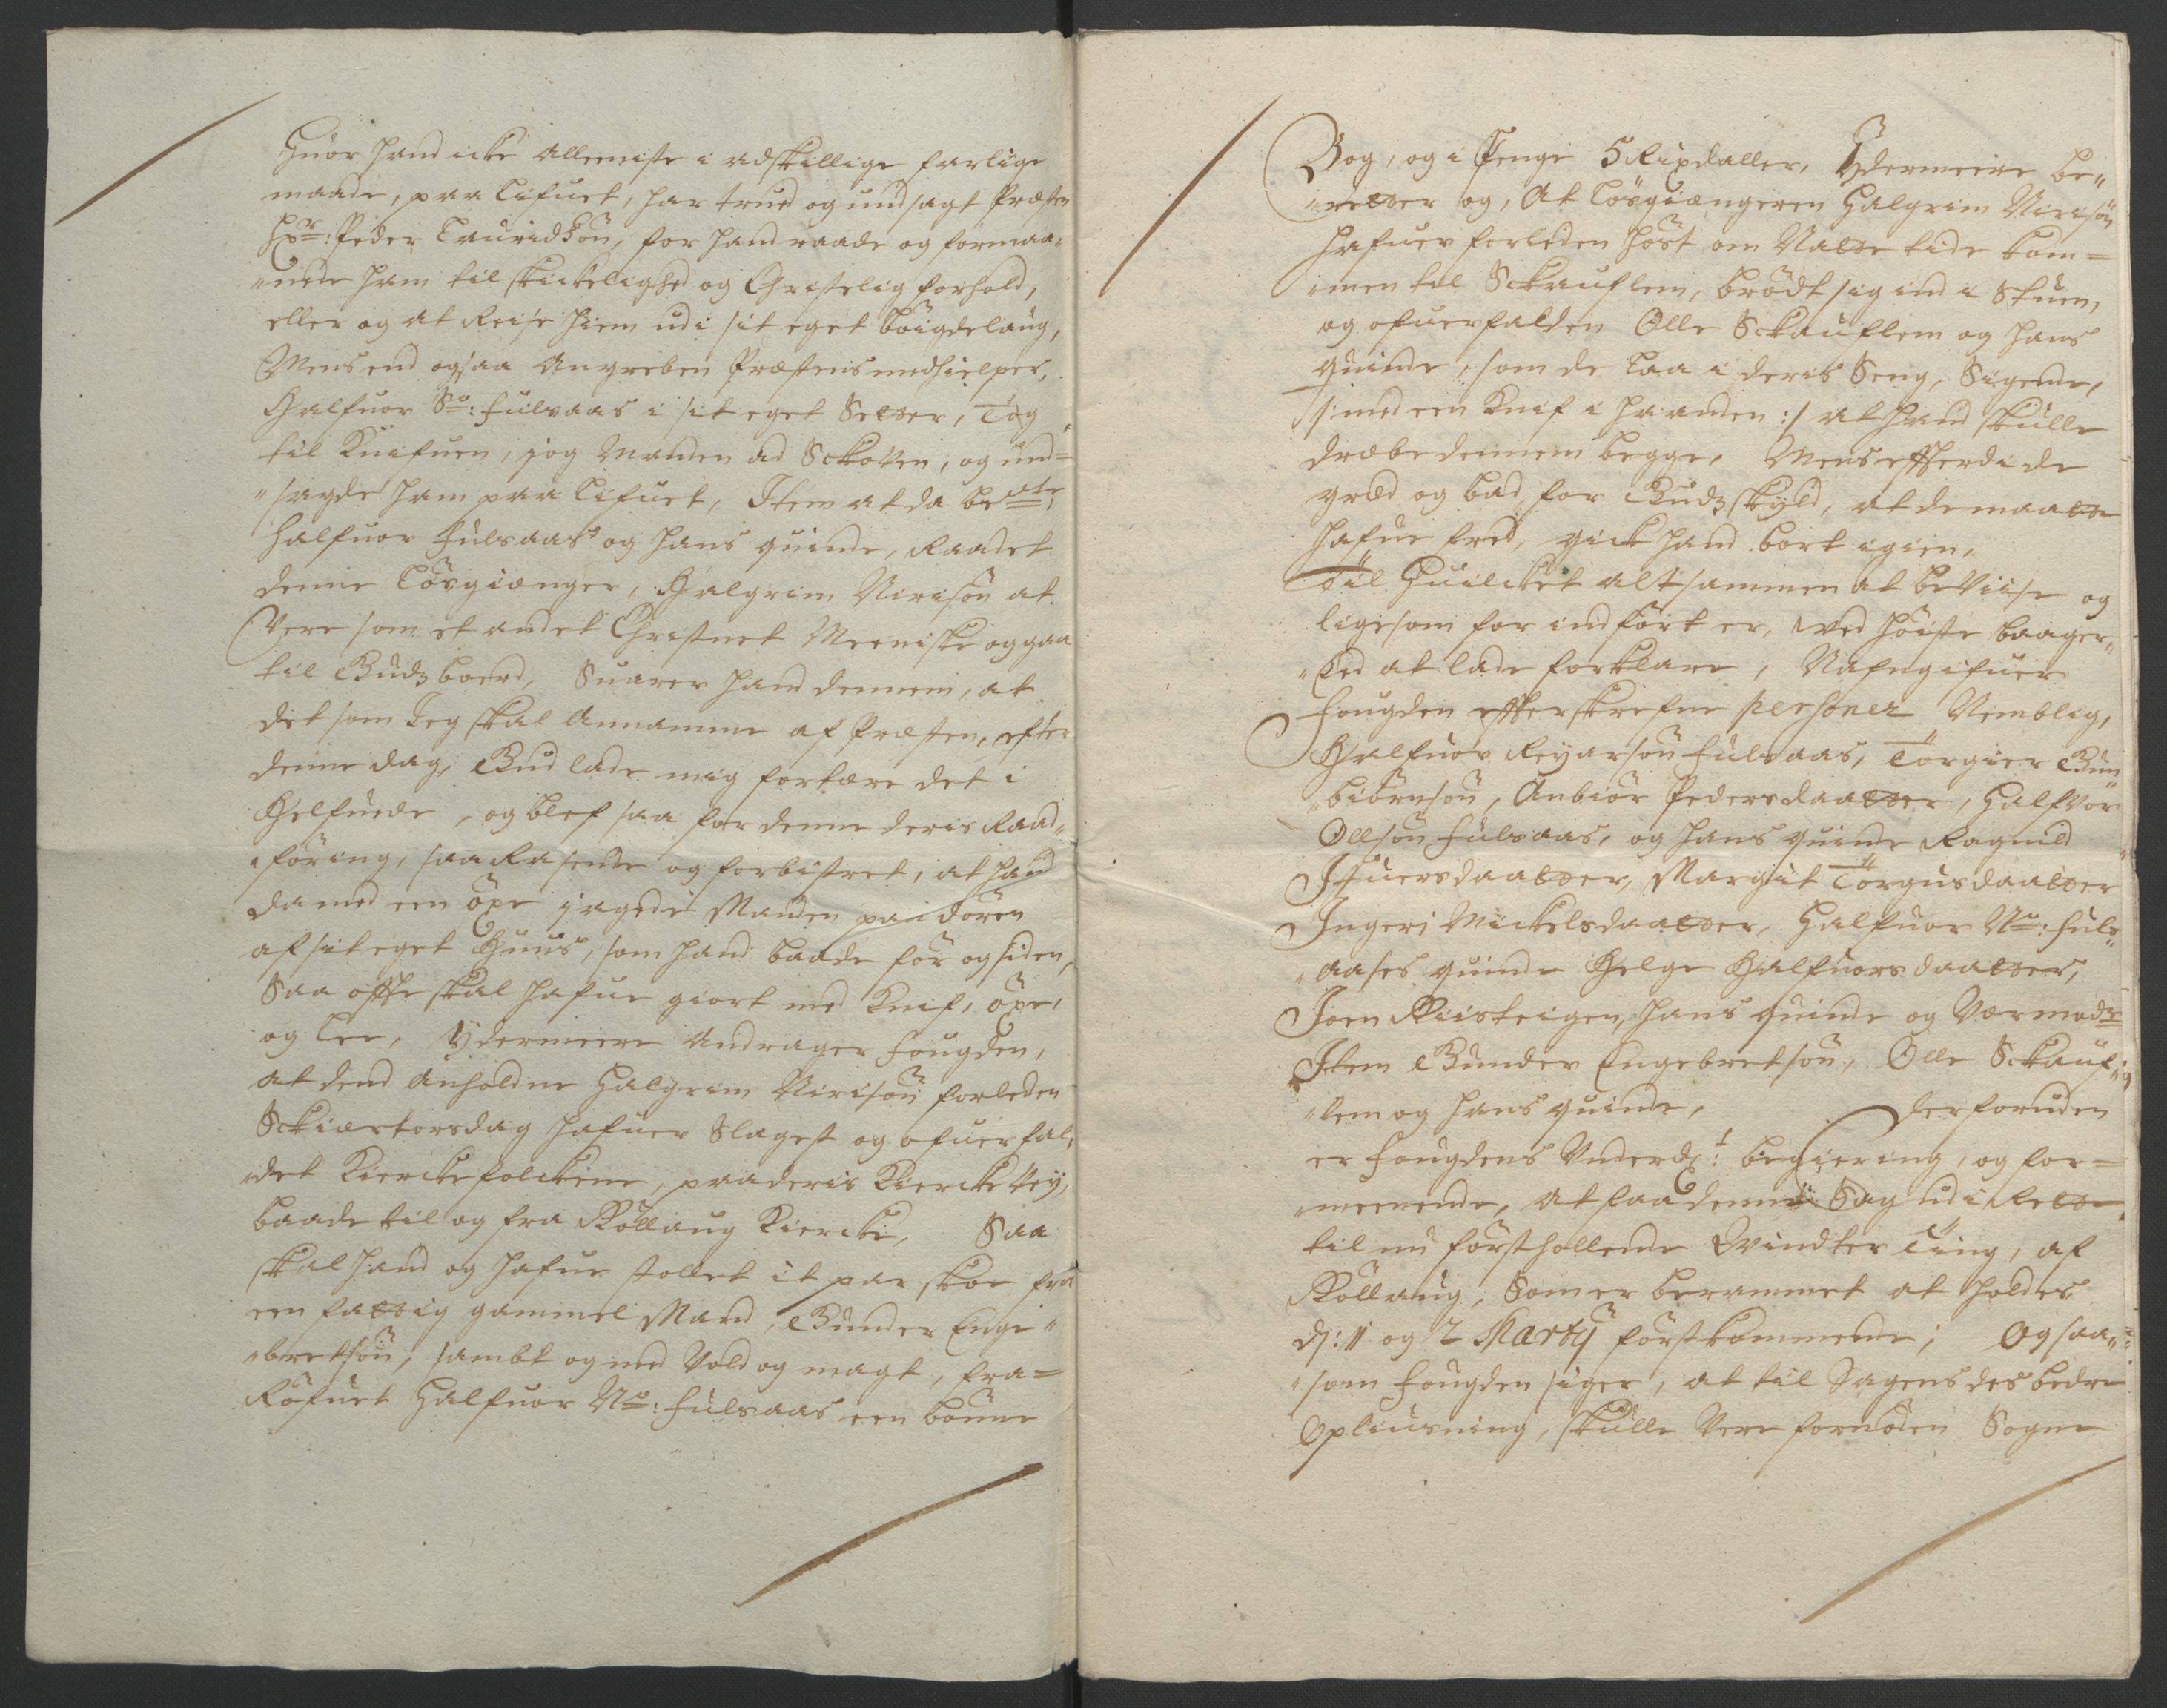 Huor hand icke alleeniste i adskillige farlige
maade, paa lifuet, har trued og undsagt Præsten
Hr: Peder Lauridsön, for hand raade og formaa„
„nede ham til skickelighed og Christelig forhold,
eller og at Reise hiem udi sit eget böigdelaug,
Mens end ogsaa Angreben Præstens medhielper,
Halfuor Nu: Fulsaas i sit eget Setter, Tog
til Knifuen, jog Manden ad Skoven, og und=
„sagde ham paa lifuet, Item at da be:te
Halfuor Fulsaas og hans quinde, Raadet
denne Lösgiænger, Halgrim Nirisön at
Vere som et andet Christnet Meeniske og gaa
til Gudz boerd, Suarer hand dennem, at
det som Jeg skal Annamme af Præsten, efter
denne dag, Gud lade mig fortære det i
Helfuede, og blef saa for denne deris Raad„
„föring, saa Rasende og forbistret, at hand
da med een öxe jagede Manden paa dören
af sit eget Huus, som hand baade för og siden,
Saa offte skal hafue giort med Knif, öxe,
og Lee, Ydermeere Andrager Fougden,
at dend Anholdne Halgrim Nirisön forleden
Skiærtorsdag hafuer Slagest og ofuerfal„
„det Kierckefolckene, paa deris Kiercke Vej,
baade til og fra Rollaug Kiercke, Saa
skal hand og hafue stollet it par skoe fra
een fattig gammel Mand, Gunder Enge„
„bretsön, sambt og med Vold og magt, fra=
Röfuet Halfuor Nu: Fulsaas een bönne
Bog, og i Penge 5 Rixdaller, Ydermeere be„
„retter og, At Lösgiængeren Halgrim Nirisön
hafuer forleden höst om Natte tide kom=
„men til Skauflem, brödt sig ind i Stuen,
og ofuerfalden Olle Skauflem og hans
quinde, som de laa i deris Seng, Sigende,
/: med een Knif i haanden :/ at hand skulle
dræbe dennem begge, Mens efterdi de
græd og bad for Gudz skyld, at de maatte
hafue fred, gick hand bort igien,
Til Huilcket altsammen at beviise og
ligesom for indfört er, wed höiste baager„
„Eed at lade forklare, Nafngifuer
Fougden efterskrefne personer Nemblig,
Halfuor Reyarsön Fulsaas, Torgier Gun
„biörnsön, Anbiör Pedersdaatter, Halfvor
Ollsön Fulsaas, og hans quinde Ragnild
Ifuersdaatter, Margit Torgusdaatter
Ingeri Mickelsdaatter, Halfuor Nu: Fuls„
„aases quinde Helge Halfuorsdaatter,
Joen Riisteigen, hans quinde og Værmoder
Item Gunder Engebretsön, Olle Skauf„
„lem og hans quinde, Derforuden
er Fougdens Underd:t begiering, og for=
„meenende, at faa denne Sag udi Rette
til nu förstholdende Windter Ting, af
Rollaug, Som er berammet at holdes
dj: 11 og 12 Martij förstkommende; Og saa„
„som Fougden siger, at til Sagens des bedre
Opliusning, skulle Vere fornöden Sogne